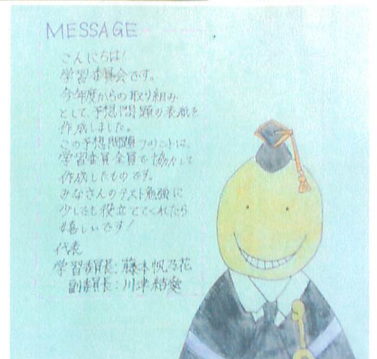 MESSAGE
こんにちは!
学習委員会です。
今年度からの取り組み
として、予想問題の表紙を
作成しました。
この予想問題プリントは、
学習委員全員で協力して
作成したものです。
みなさんのテスト勉強に
少しでも役立ててくれたら
嬉しいです!
代表
学習委員長:藤本帆乃花
副委員長:川津結愛